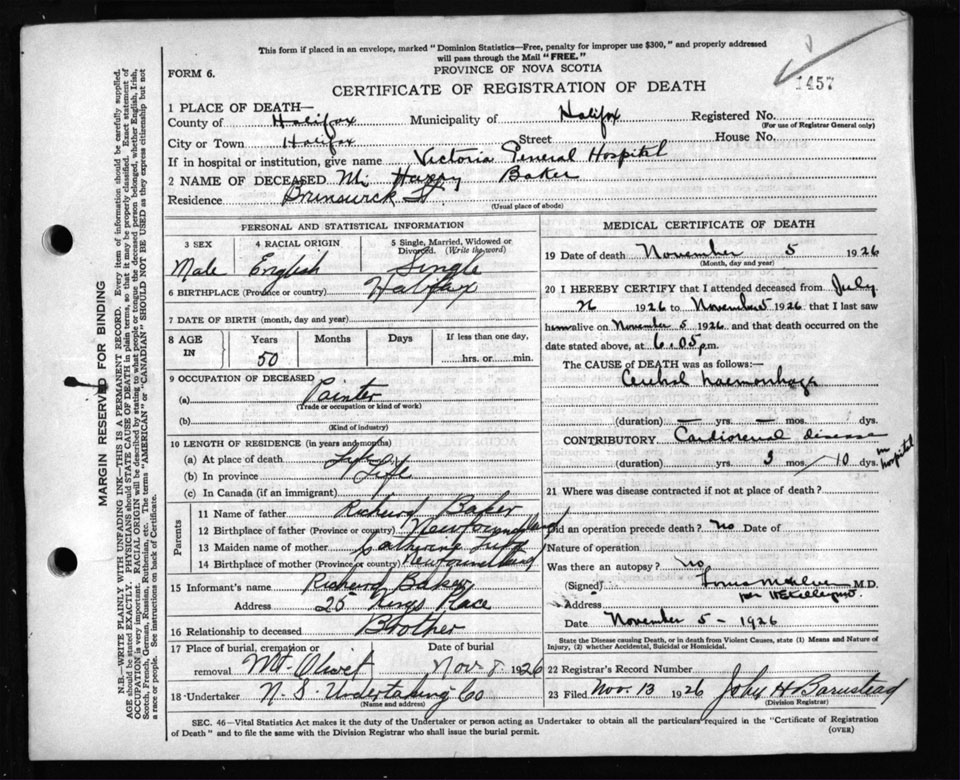 This form if placed in an envelope, marked "Dominion Statistics—Free, penalty for improper use $300," and properly addressed
will pass through the Mail "FREE."
FORM 6.
PROVINCE OF NOVA SCOTIA
CERTIFICATE OF REGISTRATION OF DEATH
1457
1 PLACE OF DEATH—
County of Halifax Municipality of Halifax Registered No.
(For use of Registrar General only)
City or Town Halifax Street House No.
If in hospital or institution, give name Victoria General Hospital
2 NAME OF DECEASED Mr Harry Baker
Residence Brunswick St
(Usual place of abode)
PERSONAL AND STATISTICAL INFORMATION
3 SEX 4 RACIAL ORIGIN 5 Single, Married, Widowed or
Divorced. (Write the word)
Male English Single
6 BIRTHPLACE (Province or country) Halifax
7 DATE OF BIRTH (month, day and year)
8 AGE IN Years Months Days If less than one day,
50 hrs. or min.
9 OCCUPATION OF DECEASED
(a) Painter
(Trade or occupation or kind of work)
(b)
(Kind of industry)
10 LENGTH OF RESIDENCE (in years and months)
(a) At place of death Life
(b) In province Life
(c) In Canada (if an immigrant)
Parents
11 Name of father Richard Baker
12 Birthplace of father (Province or country) Newfoundland
13 Maiden name of mother Catherine
14 Birthplace of mother (Province or country) Newfoundland
15 Informant's name Richard Baker
Address 25 Kings Place
16 Relationship to deceased Brother
17 Place of burial, cremation or Date of burial
removal Mt. Olivet Nov 8 1926
18 Undertaker N. S. Undertaking Co
(Name and address)
MEDICAL CERTIFICATE OF DEATH
19 Date of death November 5 1926
(Month, day and year)
20 I HEREBY CERTIFY that I attended deceased from July
26 1926 to November 5 1926 that I last saw
him alive on November 5 1926 and that death occurred on
date stated above, at 6.05 p m.
The CAUSE OF DEATH was as follows:—
Cerebral haemorrhage
(duration) — yrs. — mos. dys.
CONTRIBUTORY Cardiorenal disease
(duration) yrs. 3 mos. 10 dys. in hospital
21 Where was disease contracted if not at place of death?
Did an operation precede death? no Date of
Nature of operation
Was there an autopsy? no
(Signed) M.D.
Address
Date November 5 - 1926
State the Disease causing Death, or in death from Violent Causes, state (1) Means and Nature of
Injury, (2) whether Accidental, Suicidal or Homicidal.
22 Registrar's Record Number
23 Filed Nov. 13 1926 John H Barnstead
(Division Registrar)
SEC. 46—Vital Statistics Act makes it the duty of the Undertaker or person acting as Undertaker to obtain all the particulars required in the "Certificate of Registration
of Death" and to file the same with the Division Registrar who shall issue the burial permit.
(OVER)
MARGIN RESERVED FOR BINDING
N.B.—WRITE PLAINLY WITH UNFADING INK—THIS IS A PERMANENT RECORD. Every item of information should be carefully supplied.
AGE should be stated EXACTLY. PHYSICIANS should STATE CAUSE OF DEATH in plain terms, so that it may be properly classified. Exact statement of
OCCUPATION is very important. RACIAL ORIGIN will be described by stating to what people or tongue the deceased person belonged, whether English, Irish,
Scotch, French, German, Russian, Ruthenian, etc. The terms "AMERICAN" or "CANADIAN" SHOULD NOT BE USED as they express citizenship but not
a race or people. See instructions on back of Certificate.